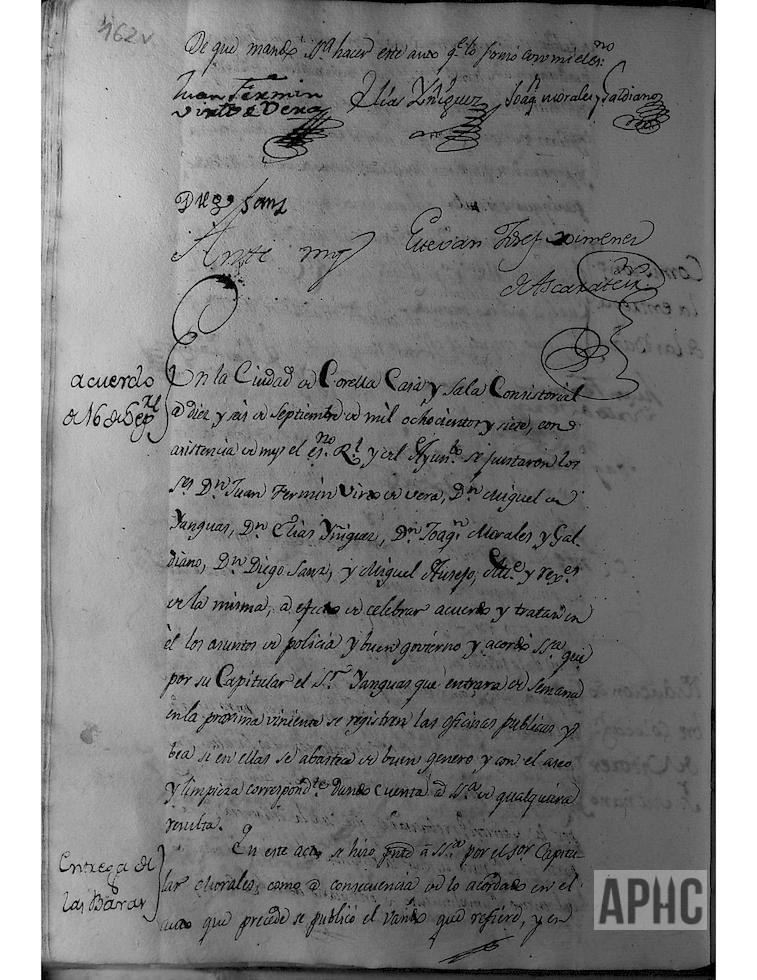 162v
De que mandó S.ª hacer este auto q.e lo firmó con mi el es.no
Juan Fermin Elias Yñiguez Joaq.n Morales y Galdiano
Virto de Vera
Diego Sanz
Ante my Estevan Josef Ximenez
de Ascarate
acuerdo
de 16 de Sep.
En la Ciudad de Corella Casa y Sala Consistorial
a diez y seis de Septiembre de mil ochocientos y siete, con
asistencia de my el es.no R.l y del Ayun.to se juntaron los
ss.es D.n Juan Fermin Virto de Vera, D.n Miguel de
Yanguas, D.n Elias Yñiguez, D.n Joaq.n Morales y Gal-
diano, D.n Diego Sanz, y Miguel Ausejo, Alc.e y rex.es
de la misma, a efecto de celebrar acuerdo y tratar en
èl los asuntos de policia y buen govierno y acordó que
por su Capitular el S.r Yanguas que entrara de Semana
en la proxima viniente se registren las oficinas publicas y
bea si en ellas se abastece de buen genero y con el aseo
y limpieza correspond.te dando cuenta à S.ª de qualquiera
resulta.
Entrega de
las Baras
En este acto se hizo pnte à S.ª por el sor Capitu
lar Morales, como a consecuencia de lo acordado en el
auto que precede se publicó el vando que refiere, y en
APHC